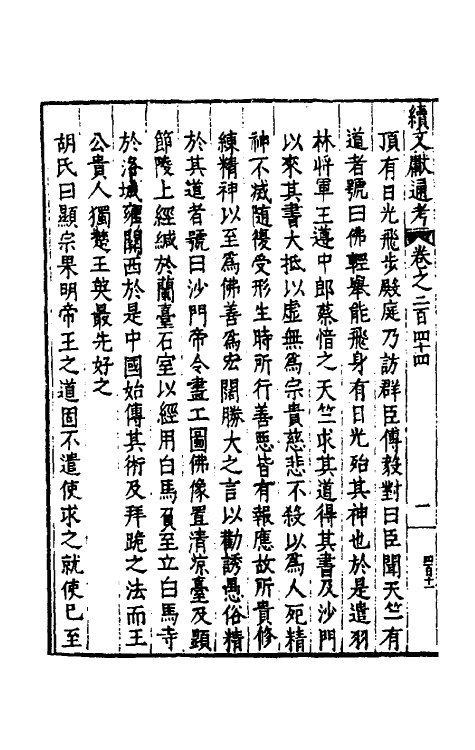 續文獻通考 卷之二百四十四 一 四百十一
頂有日光飛步殿庭乃訪群臣傅毅對曰臣聞天竺有
道者號曰佛輕舉能飛身有日光殆其神也於是遣羽
林將軍王遵中郎蔡愔之天竺求其道得其書及沙門
以來其書大抵以虛無爲宗貴慈悲不殺以爲人死精
神不滅隨復受形生時所行善惡皆有報應故所貴修
練精神以至爲佛善爲宏闊勝大之言以勸誘愚俗精
於其道者號曰沙門帝令畫工圖佛像置清凉臺及顯
節陵上經緘於蘭臺石室以經用白馬負至立白馬寺
於洛城雍關西於是中國始傳其術及拜跪之法而王
公貴人獨楚王英最先好之
胡氏曰顯宗果明帝王之道固不遣使求之就使已至